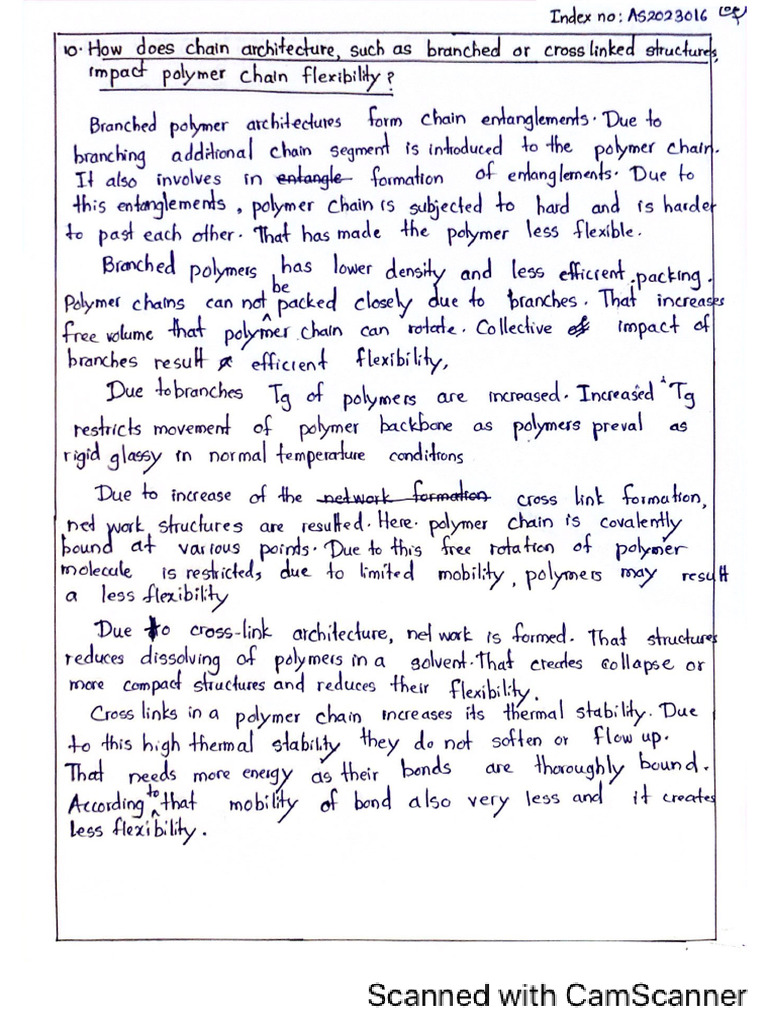 Index no: AS2023016
10. How does chain architecture, such as branched or cross linked structures,
impact polymer chain flexibility?
Branched polymer architectures form chain entanglements. Due to
branching additional chain segment is introduced to the polymer chain.
It also involves in entangle formation of entanglements. Due to
this entanglements, polymer chain is subjected to hard and is harder
to past each other. That has made the polymer less flexible.
Branched polymers has lower density and less efficient packing.
Polymer chains can not be packed closely due to branches. That increases
free volume that polymer chain can rotate. Collective of impact of
branches result efficient flexibility,
Due to branches Tg of polymers are increased. Increased Tg
restricts movement of polymer backbone as polymers preval as
rigid glassy in normal temperature conditions
Due to increase of the network formation cross link formation,
net work structures are resulted. Here polymer chain is covalently
bound at various points. Due to this free rotation of polymer
molecule is restricted, due to limited mobility, polymers may result
a less flexibility
Due to cross-link architecture, net work is formed. That structures
reduces dissolving of polymers in a solvent. That creates collapse or
more compact structures and reduces their flexibility.
Cross links in a polymer chain increases its thermal stability. Due
to this high thermal stability they do not soften or flow up.
That needs more energy as their bonds are thoroughly bound.
According to that mobility of bond also very less and it creates
less flexibility.
Scanned with CamScanner